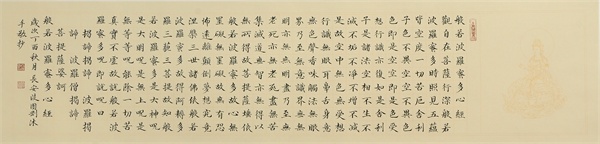 般若波羅蜜多心經
觀自在菩薩行深般若
波羅蜜多時照見五蘊
皆空度一切苦厄舍利
子色不異空空不異色
色即是空空即是色受
想行識亦復如是舍利
子是諸法空相不生不
滅不垢不淨不增不減
是故空中無色無受想
行識無眼耳鼻舌身意
無色聲香味觸法無眼
界乃至無意識界無無
明亦無無明盡乃至無
老死亦無老死盡無苦
集滅道無智亦無得以
無所得故菩提薩埵依
般若波羅蜜多故心無
罣礙無罣礙故無有恐
怖遠離顛倒夢想究竟
涅槃三世諸佛依般若
波羅蜜多故得阿耨多
羅三藐三菩提故知般
若波羅蜜多是大神呪
是大明呪是無上呪是
無等等呪能除一切苦
真實不虛故說般若波
羅蜜多呪即說呪曰
揭諦揭諦 波羅揭
諦 波羅僧揭諦
菩提薩婆訶
般若波羅蜜多心經
歲次丁酉秋月長安劉沐
手敬抄